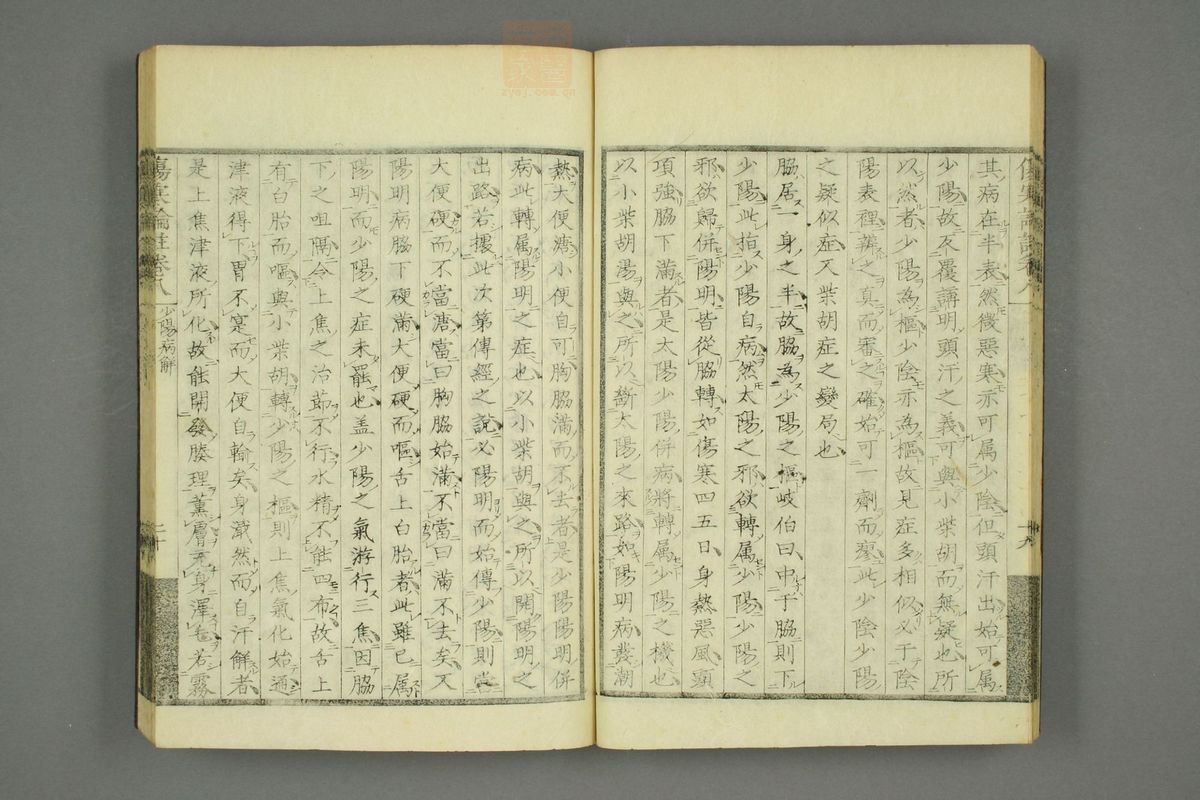 其病在半表然微惡寒亦可属少陰但頭汗出始可属
少陽故反覆講明頭汗之義可與小柴胡而無疑也所
以然者少陽為樞少陰亦為樞故見症多相似必于陰
陽表裡辨之真而審之確始可一劑而瘳此少陰少陽
之疑似症又柴胡症之變局也
脇居一身之半故脇為少陽之樞岐伯曰中于脇則下
少陽此指少陽自病然太陽之邪欲轉属少陽少陽之
邪欲歸併陽明皆從脇轉如傷寒四五日身熱惡風頭
項強脇下滿者是太陽少陽併病將轉属少陽之機也
以小柴胡湯與之所以斷太陽之來路如陽明病發潮
熱大便溏小便自可胸脇滿而不去者是少陽陽明併
病此轉属陽明之症也以小柴胡與之所以開陽明之
出路若據此次第傳經之說必陽明而始傳少陽則當
大便硬而不當溏當曰胸脇始滿不當曰滿不去矣又
陽明病脇下硬滿大便硬而嘔舌上白胎者此雖已属
陽明而少陽之症未罷也盖少陽之氣游行三焦因脇
下之阻隔令上焦之治節不行水精不能四布故舌上
有白胎而嘔與小柴胡轉少陽之樞則上焦氣化始通
津液得下胃不寔而大便自輸矣身濈然而自汗解者
是上焦津液所化故能開發腠理薰膚充身澤毛若霧
傷寒論註卷八
少陽病解
二十
十九
zyoj.com.cn